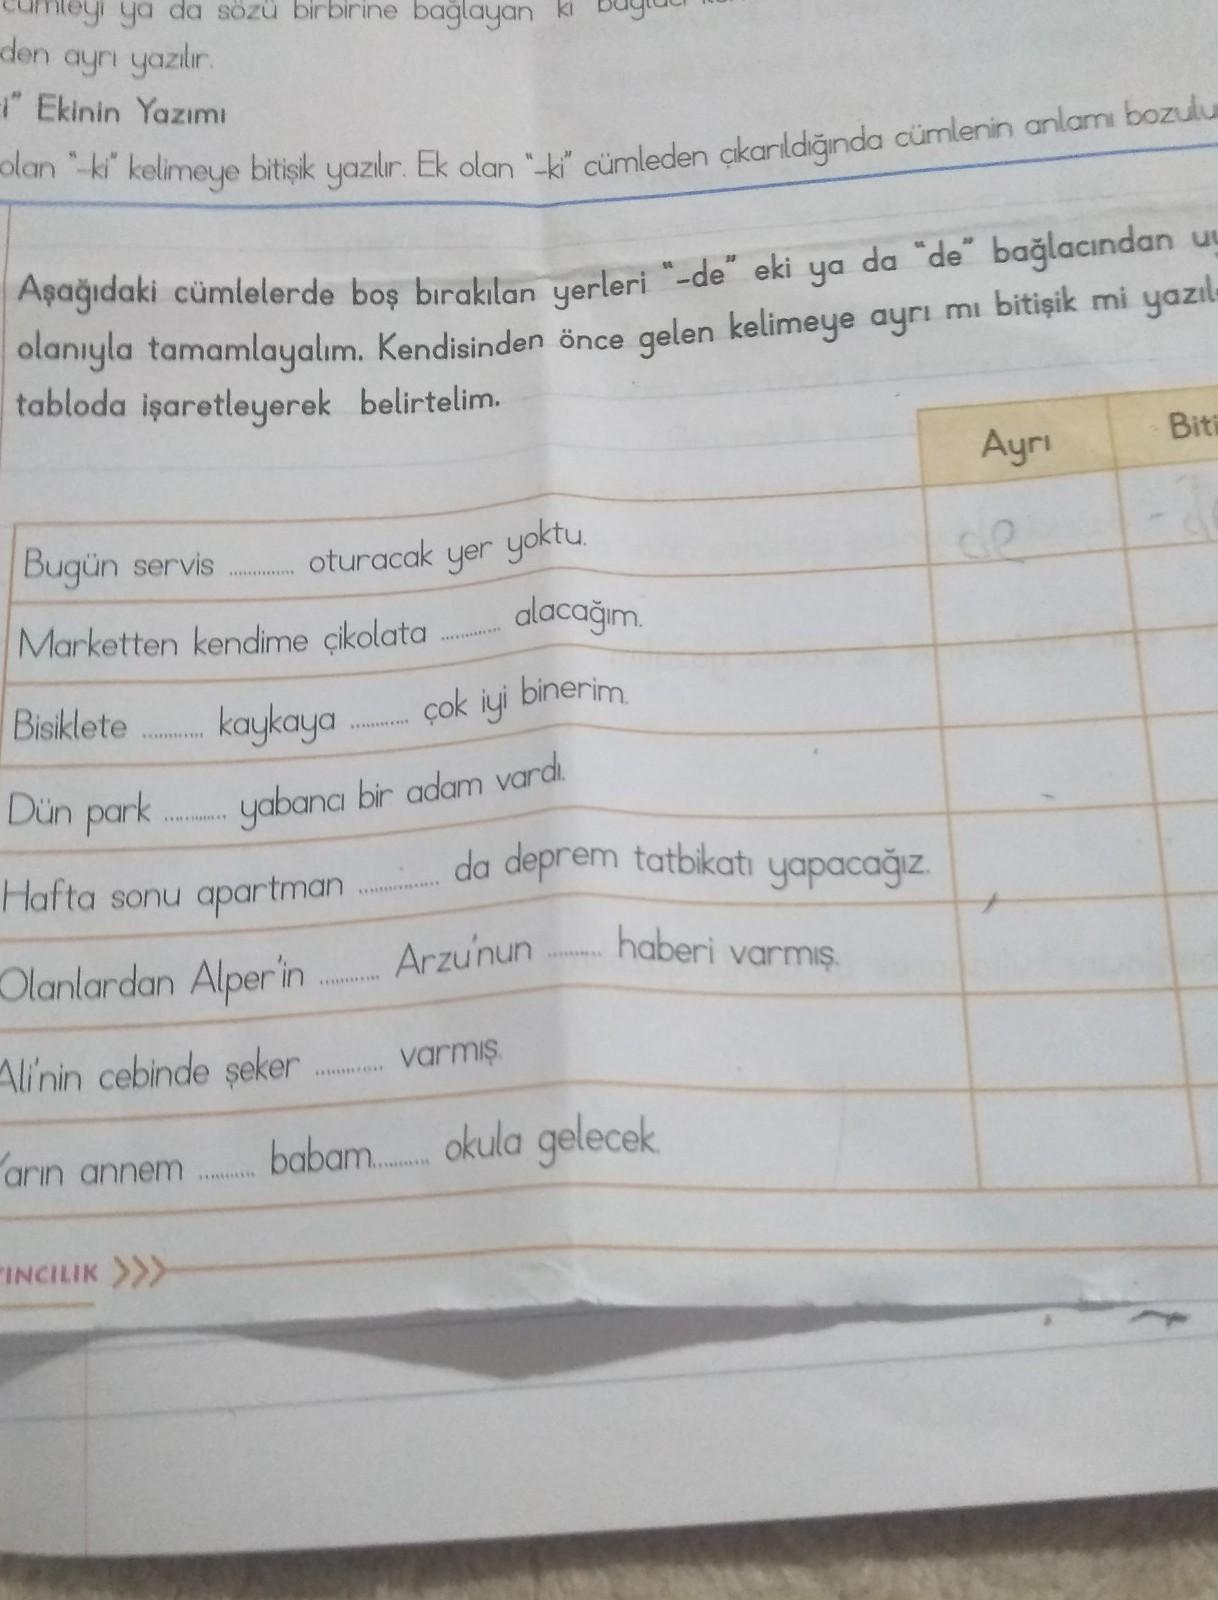 cümleyi ya da sözü birbirine bağlayan ki
den ayrı yazılır.
i" Ekinin Yazımı
olan "-ki" kelimeye bitişik yazılır. Ek olan "-ki" cümleden çıkarıldığında cümlenin anlamı bozulu
Aşağıdaki cümlelerde boş bırakılan yerleri "-de" eki ya da "de" bağlacından uy
olanıyla tamamlayalım. Kendisinden önce gelen kelimeye ayrı mı bitişik mi yazıl
tabloda işaretleyerek belirtelim.
Ayrı Biti
Bugün servis ............ oturacak yer yoktu. de - d
Marketten kendime çikolata ............ alacağım.
Bisiklete ............ kaykaya ............ çok iyi binerim.
Dün park ............ yabancı bir adam vardı.
Hafta sonu apartman ............ da deprem tatbikatı yapacağız.
Olanlardan Alper'in ............ Arzu'nun ............ haberi varmış.
Ali'nin cebinde şeker ............ varmış.
Yarın annem ............ babam............ okula gelecek.
INCILIK